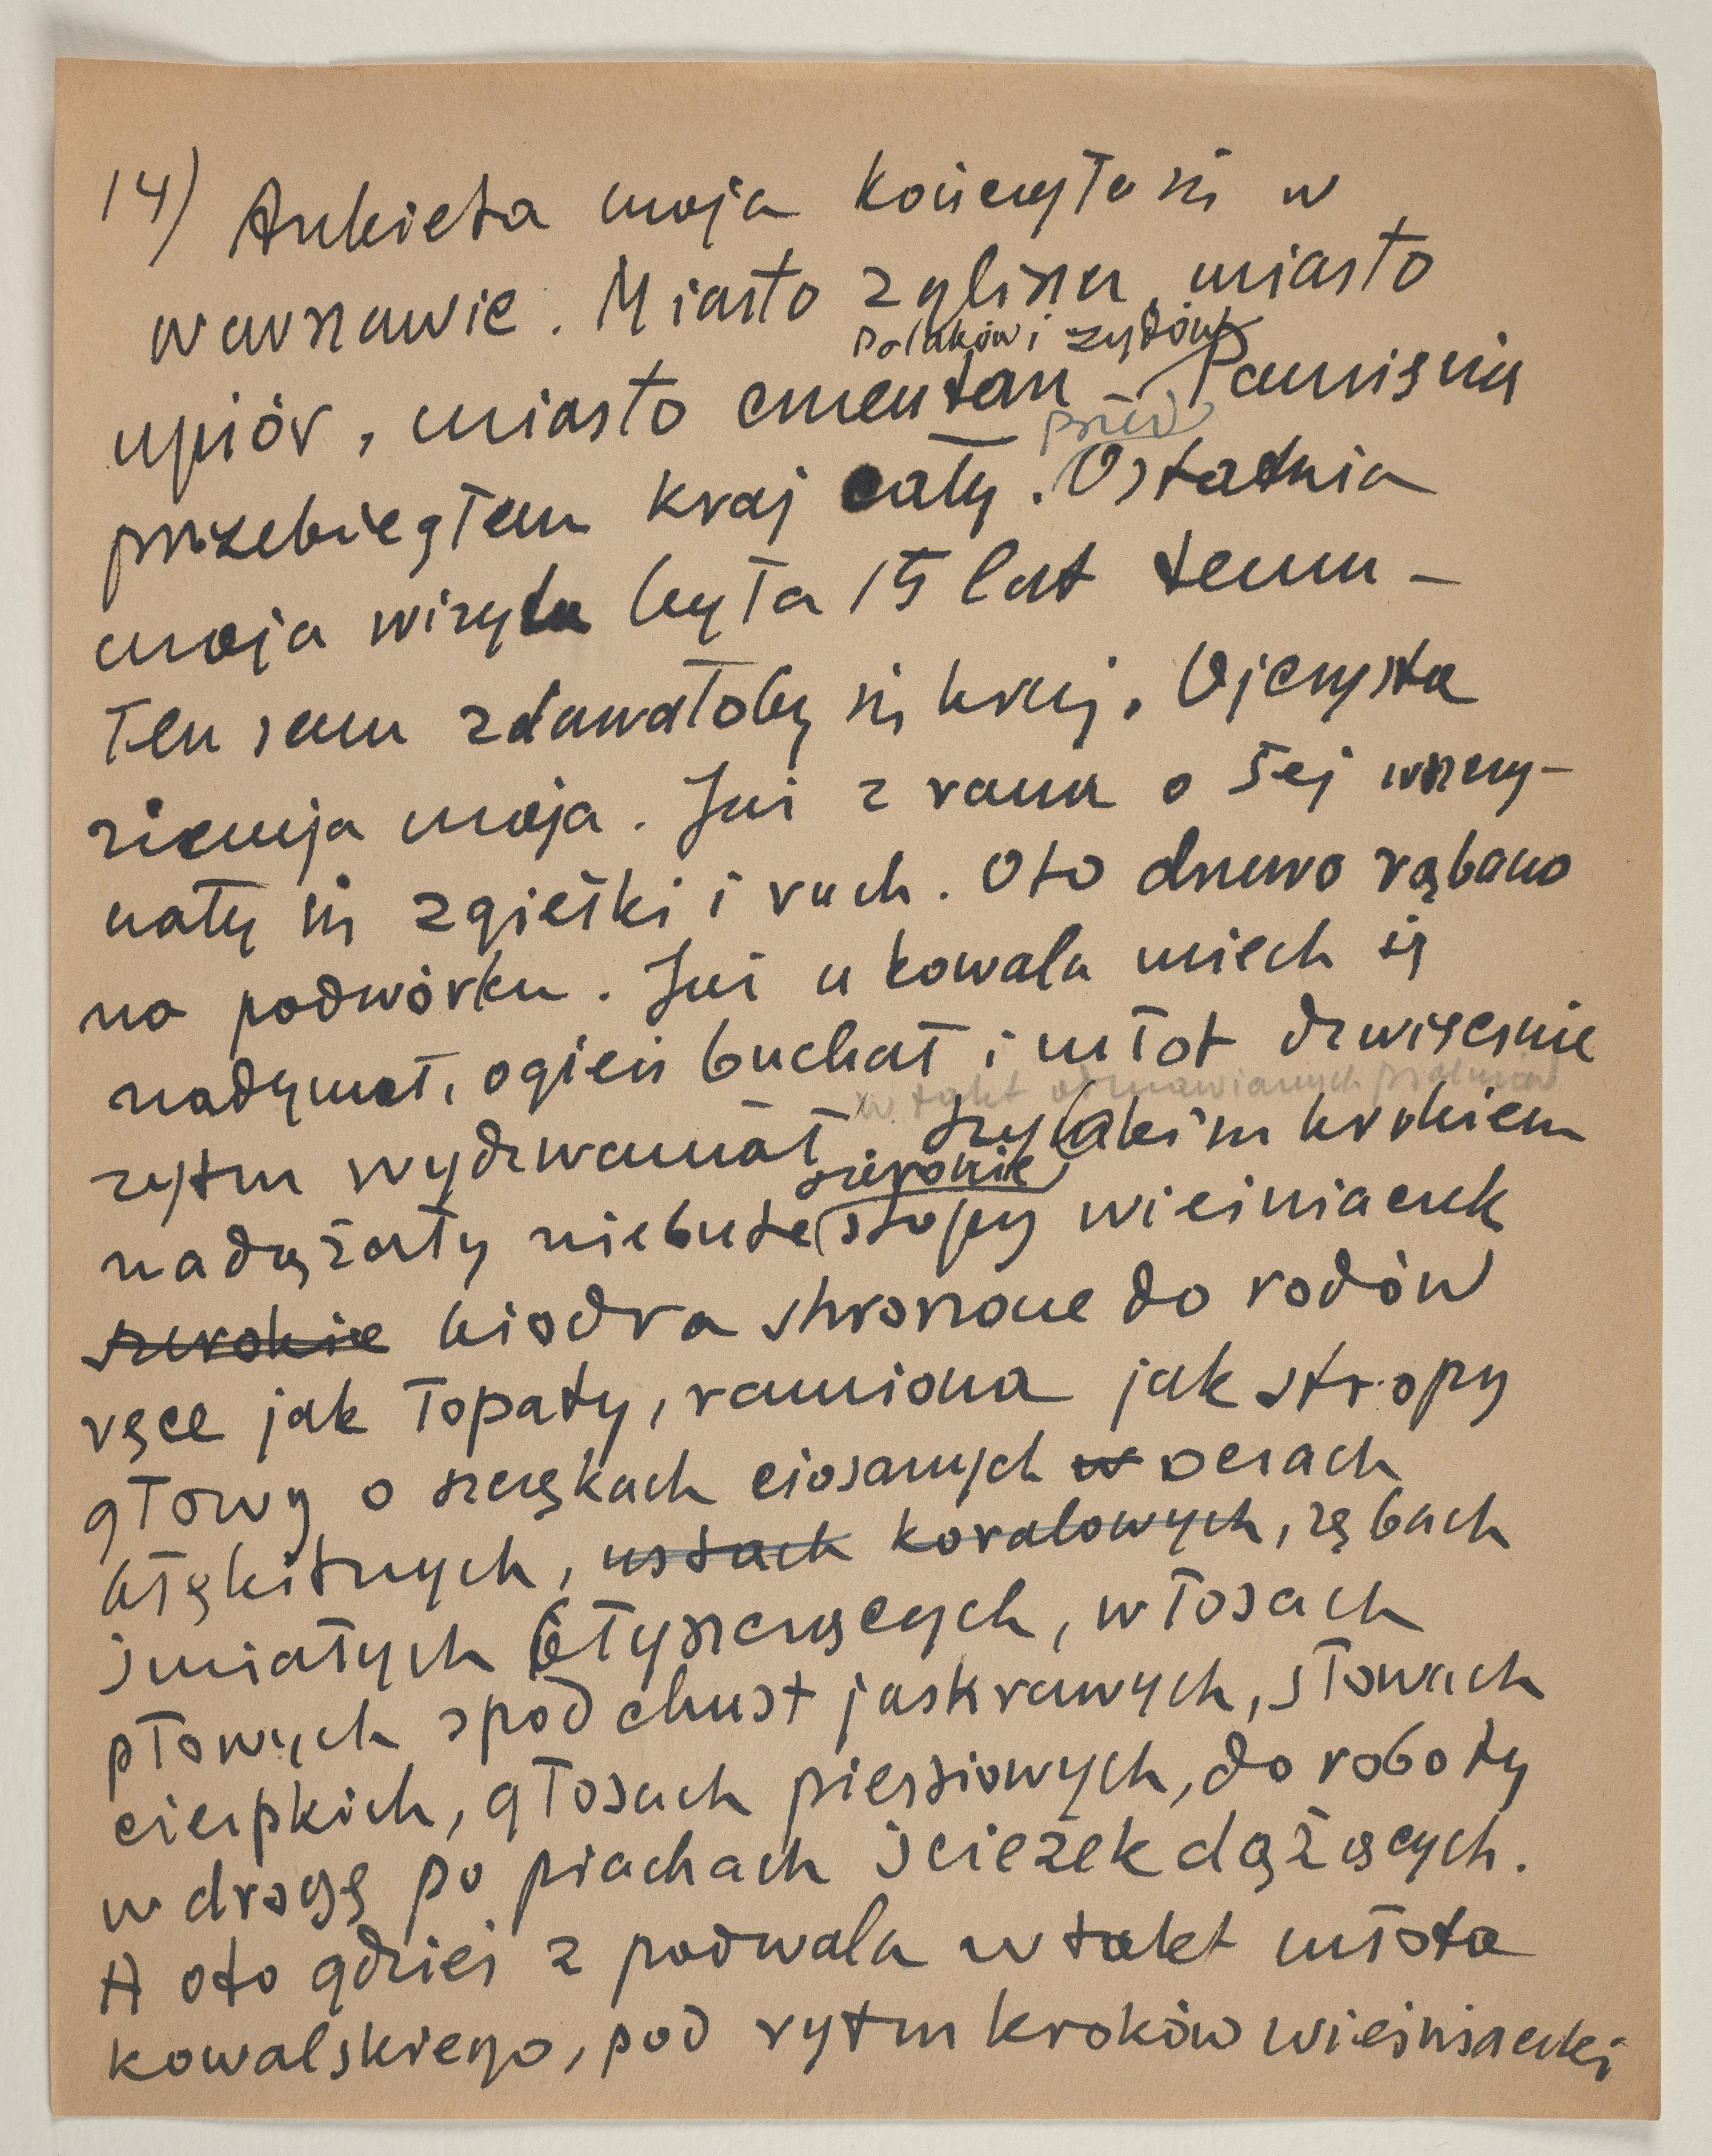 14) Ankieta moja kończyła się w
Warszawie. Miasto zgliszcz, miasto
Polaków i żydów
upiór, miasto cmentarz – Pamięcią
przed
przebiegłem kraj cały. Ostatnia
moja wizyta była 15 lat temu –
Ten sam zdawałoby się kraj. Ojczysta
ziemia moja. Już z rana o 5ej wszczy-
nały się zgiełki i ruch. Oto drzewo rąbano
na podwórku. Już u kowala miech się
nadymał, ogień buchał i młot dzwięcznie
w takt odmawianych psalmów
rytm wydzwaniał. Szybkim krokiem
szerokie
nadążały niebute stopy wieśniaczek
szerokie biodra skrojone do rodów
ręce jak łopaty, ramiona jak stropy
głowy o szczękach ciosanych w oczach
błękitnych, ustach koralowych, zębach
śmiałych błyszczących, włosach
płowych spod chust jaskrawych, słowach
cierpkich, głosach piersiowych, do roboty
w drogę po piachach ścieżek dążących.
A oto gdzieś z podwala w takt młota
kowalskiego, pod rytm kroków wieśniaczki